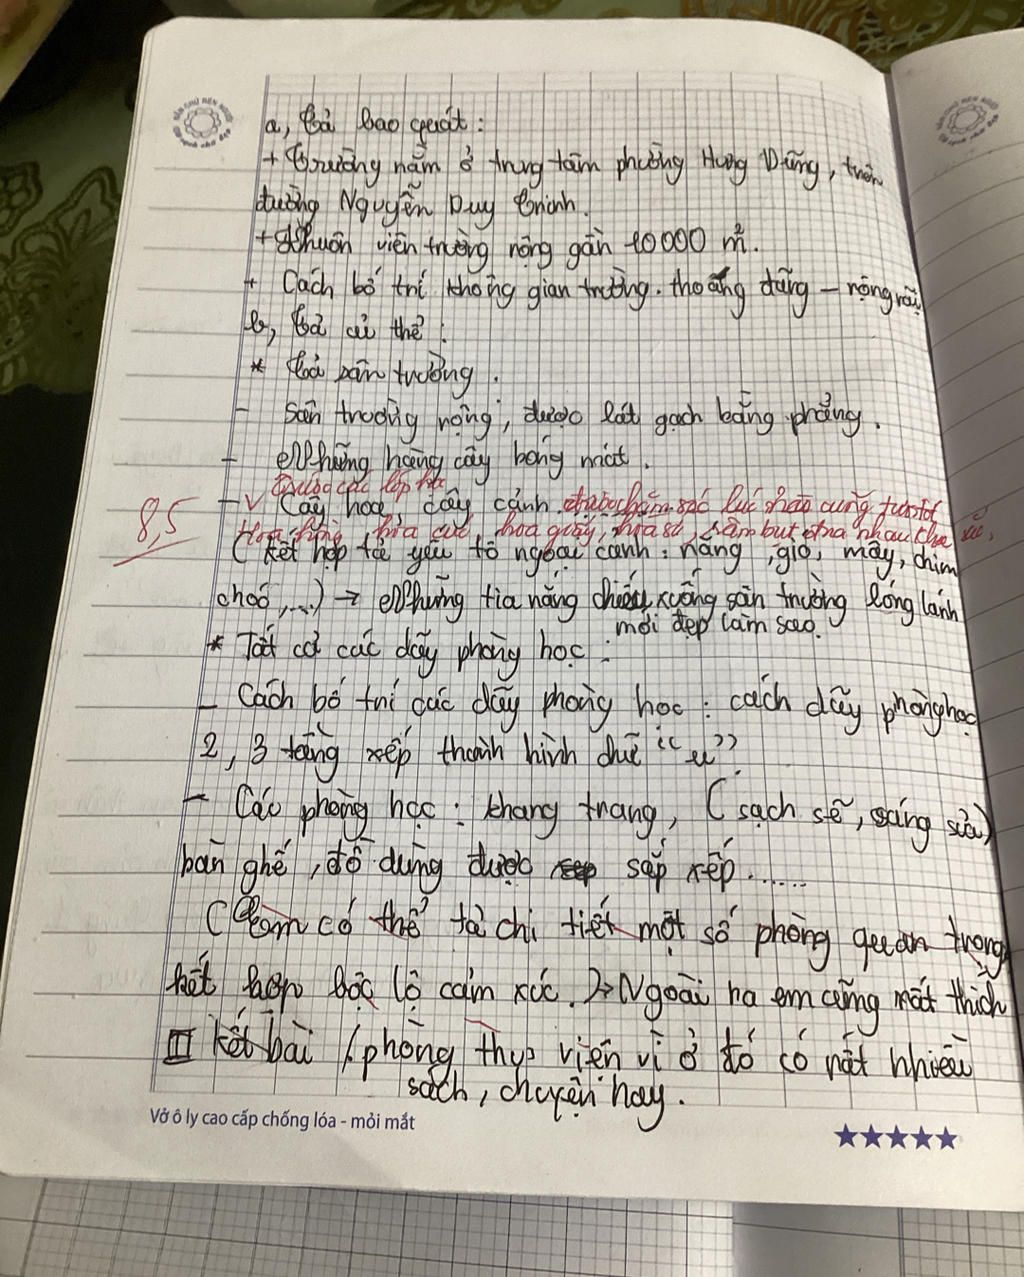 a, Tả bao quát :
+ Trường nằm ở trung tâm phường Hưng Dũng, trên
đường Nguyễn Duy Trinh.
+ Khuôn viên trường rộng gần 10000 m².
+ Cách bố trí không gian trường. thoáng đãng – rộng rãi
b, Tả cụ thể :
* Tả sân trường .
- Sân trường rộng , được lát gạch bằng phẳng .
- Những hàng cây bóng mát .
Được các lớp
- V Cây hoa, cây cảnh . chăm sóc lúc nào cũng tươi tốt
8,5
Hoa hồng hoa cúc hoa giấy, hoa sứ, râm bụt đua nhau
( Kết hợp tả yếu tố ngoại cảnh : nắng , gió, mây, chim
chóc ,...) → Những tia nắng chiếu xuống sân trường lóng lánh
mới đẹp làm sao.
* Tất cả các dãy phòng học :
- Cách bố trí các dãy phòng học : cách dãy phòng học
2, 3 tầng xếp thành hình chữ "u"
- Các phòng học : khang trang, ( sạch sẽ, sáng sủa)
bàn ghế , đồ dùng được sắp xếp......
( Em có thể tả chi tiết một số phòng quan trọng
kết hợp bộc lộ cảm xúc. )→ Ngoài ra em cũng rất thích
III Kết bài / phòng thư viện vì ở đó có rất nhiều
sách, chuyện hay.
Vở ô ly cao cấp chống lóa - mỏi mắt